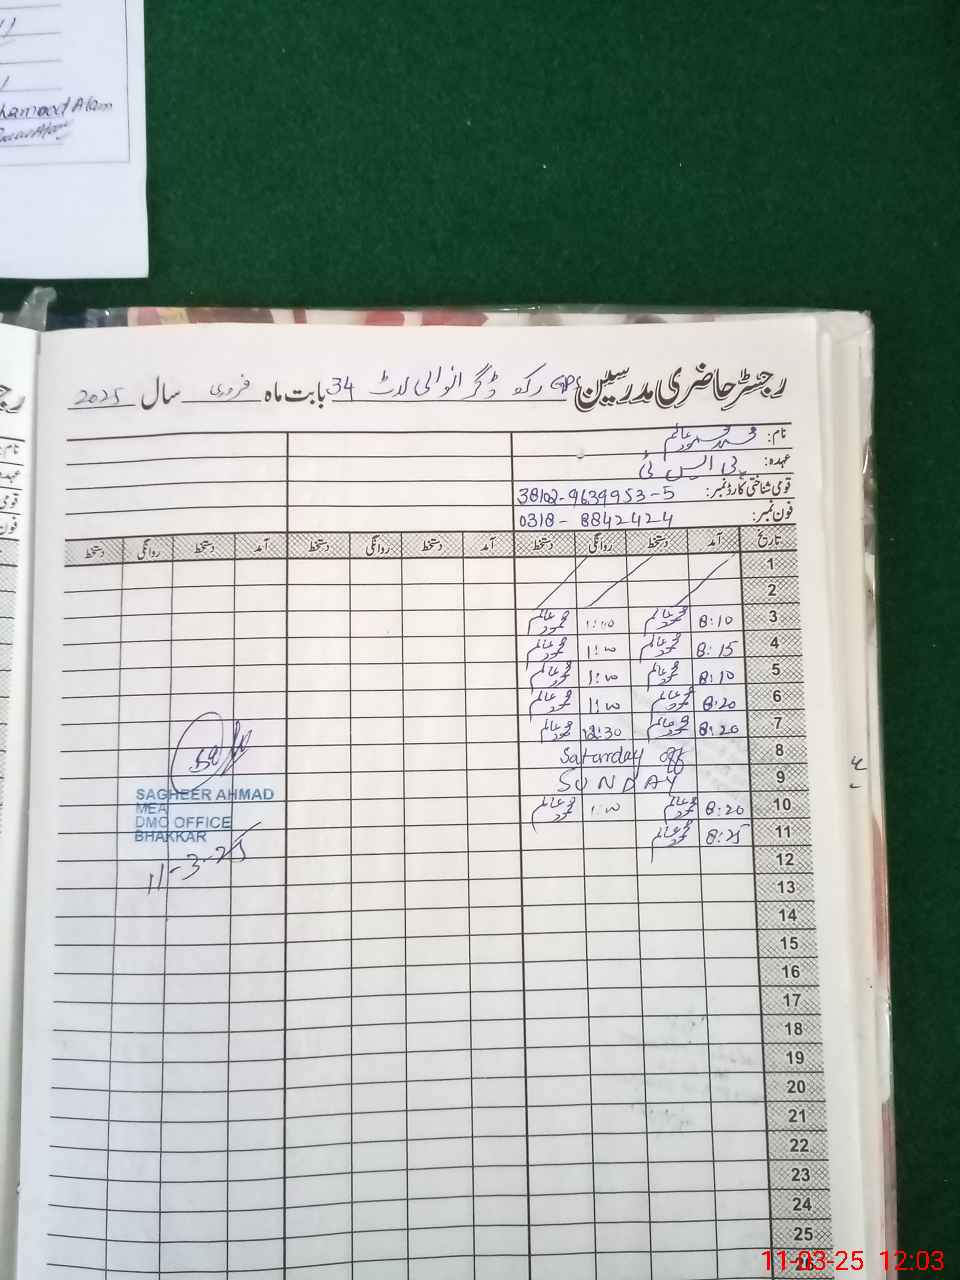 hamood Alam
رجسٹر حاضری مدرسین GPS رکھ ڈگر انوالی لاٹ 34 بابت ماہ فروری سال 2025
نام: محمد محمود عالم
عہدہ: پی ایس ٹی
قومی شناختی کارڈ نمبر: 38102-9639953-5
فون نمبر: 0318-8842424
تاریخ آمد دستخط روانگی دستخط آمد دستخط روانگی دستخط آمد دستخط روانگی دستخط
1
2
3 8:10 محمود عالم 1:00 محمود عالم
4 8:15 محمود عالم 1:00 محمود عالم
5 8:10 محمود عالم 1:00 محمود عالم
6 8:20 محمود عالم 1:00 محمود عالم
7 8:20 محمود عالم 12:30 محمود عالم
8 Saturday off
9 SUNDAY
10 8:20 محمود عالم 1:00 محمود عالم
11 8:25 محمود عالم
12
13
14
15
16
17
18
19
20
21
22
23
24
25
26
SAGHEER AHMAD
MEA
DMO OFFICE
BHAKKAR
11-3-25
11-03-25 12:03